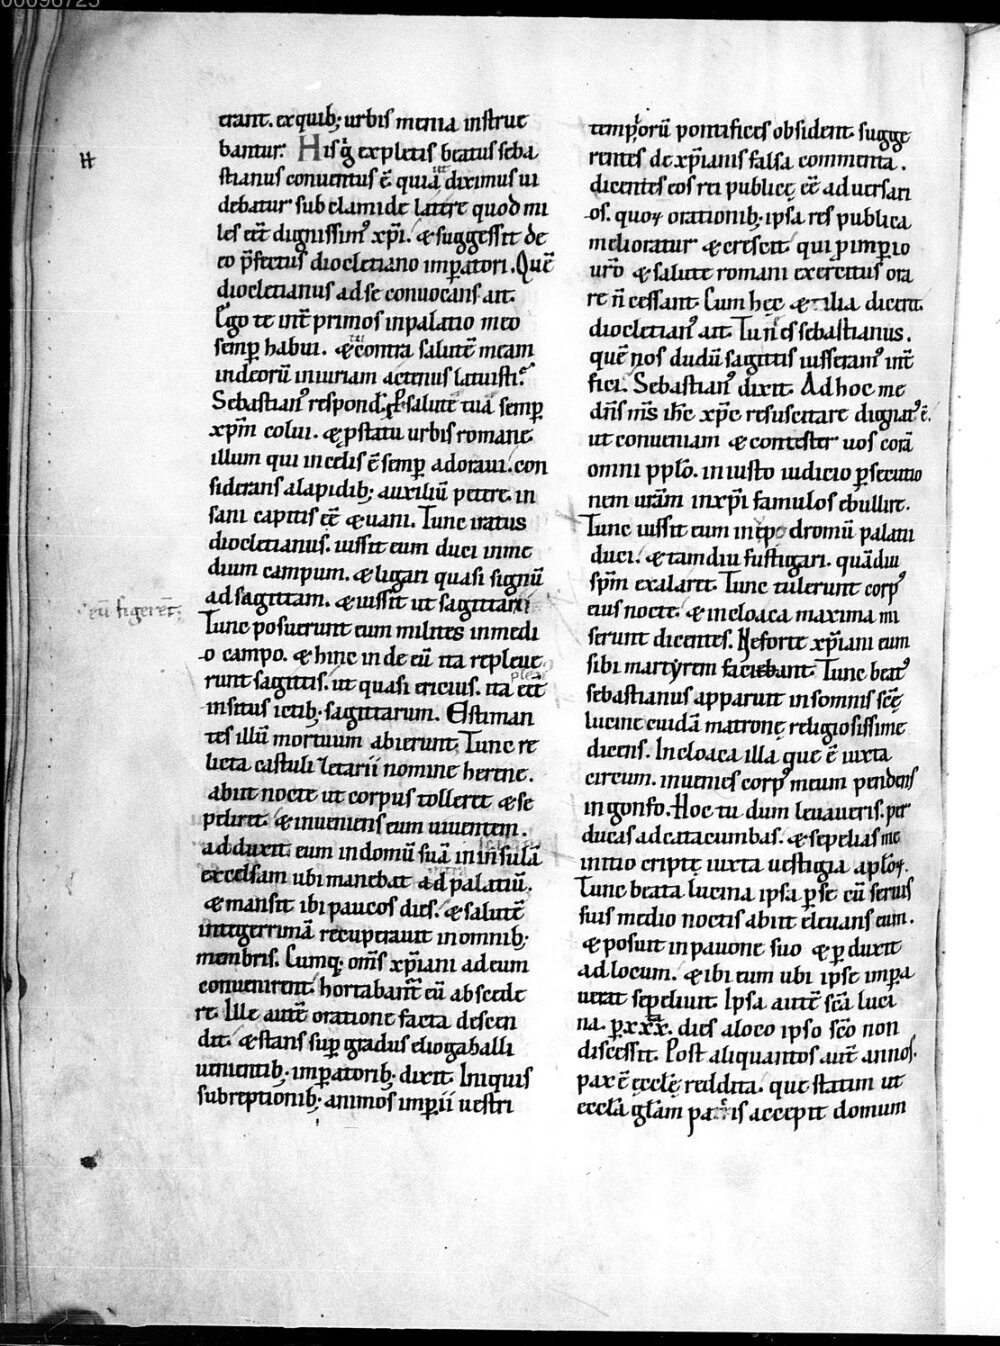 erant. ex quib; urbis menia instrue
bantur. His g̊ expletis beatus seba
stianus conuentus ē. quia ut diximus ui
debatur sub clamide latere quod mi
les eēt dignissimꝰ xp̄i. & suggessit de
eo p̄fectus diocletiano imꝑatori. Quē
diocletianus ad se conuocans ait.
Ego te int̄ primos in palatio meo
semꝑ habui. & tu contra salutē meam
in deorū iniuriam actenus latuisti?
Sebastianꝰ respond. P salutē tuā semꝑ
xp̄m colui. & p statu urbis romane
illum qui in celis ē semꝑ adoraui. con
siderans a lapidib; auxiliū petere. in
sani capitis eē & uani. Tunc iratus
diocletianus. iussit eum duci in me
dium campum. & ligari quasi signū
ad sagittam. & iussit ut sagittarii
eū figerēt;
Tunc posuerunt eum milites in medi
o campo. & hinc inde eū ita repleue
runt sagittis. ut quasi ericius. ita eēt
insitus ictib; sagittarum. Estiman
tes illū mortuum abierunt. Tunc re
licta castuli letarii nomine herene.
abiit nocte ut corpus tolleret & se
peliret. & inueniens eum uiuentem.
adduxit eum in domū suā in insulā
excelsam ubi manebat ad palatiū.
& mansit ibi paucos dies. & salutē
integerrimā recuperauit in omnib;
membris. Cumq. om̄s xp̄iani ad eum
conuenirent. hortabant̄ eū abscede
re. Ille autē oratione facta descen
dit. & stans suꝑ gradus eliogaballi
uenientib; imꝑatorib; dixit. Iniquis
subreptionib; animos imꝑii uestri
temploꝝ pontifices obsident. sugge
rentes de xp̄ianis falsa commenta.
dicentes eos rei publicę eē aduersari
os. quoꝝ orationib; ipsa res publica
melioratur & crescit. qui p imꝑio
ur̄o & salute romani exercitus ora
re n̄ cessant. Cum hęc & talia dicerēt.
diocletianꝰ ait. Tu n̄ es sebastianus.
quē nos dudū sagittis iusseramꝰ int̄
fici. Sebastianꝰ dixit. Ad hoc me
dn̄s m̄s ih̄c xp̄c resuscitare dignatꝰ ē.
ut conueniam & contester uos corā
omni pplo. iniusto iudicio ꝑsecutio
nem ur̄am in xp̄i famulos ebullire.
Tunc iussit eum in ypodromū palatii
duci. & tamdiu fustigari. quādiu
sp̄m exalaret. Tunc tulerunt corpꝰ
eius nocte. & in cloaca maxima mi
serunt dicentes. Ne forte xp̄iani eum
sibi martyrem faciebant. Tunc beatꝰ
sebastianus apparuit in somnis sc̄ę
lucine cuidā matronę religiosissime
dicens. In cloaca illa que ē iuxta
circum. inuenies corpꝰ meum pendens
in gonfo. Hoc tu dum leuaueris. per
ducas ad catacumbas. & sepelias me
initio cripte iuxta uestigia aploꝝ.
Tunc beata lucina ipsa ꝑ se cū seruis
suis medio noctis abiit eleuans eum.
& posuit in pauone suo & ꝑduxit
ad locum. & ibi eum ubi ipse impa
uerat sepeliuit. Ipsa autē sc̄a luci
na. ꝑ xxx. dies a loco ipso sc̄o non
discessit. Post aliquantos aut̄ annos.
pax ē eccłę reddita. que statim ut
eccła głam patris accepit domum